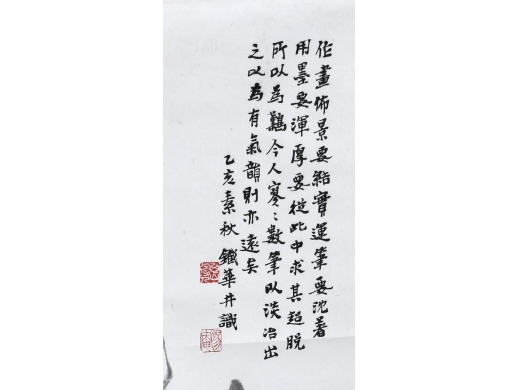 作畫佈景要結實運筆要沈著
用墨要渾厚要從此中求其超脫
所以為難今人寥〻數筆以淡冶出
之以為有氣韻則亦遠矣
乙亥素秋 鐵華并識